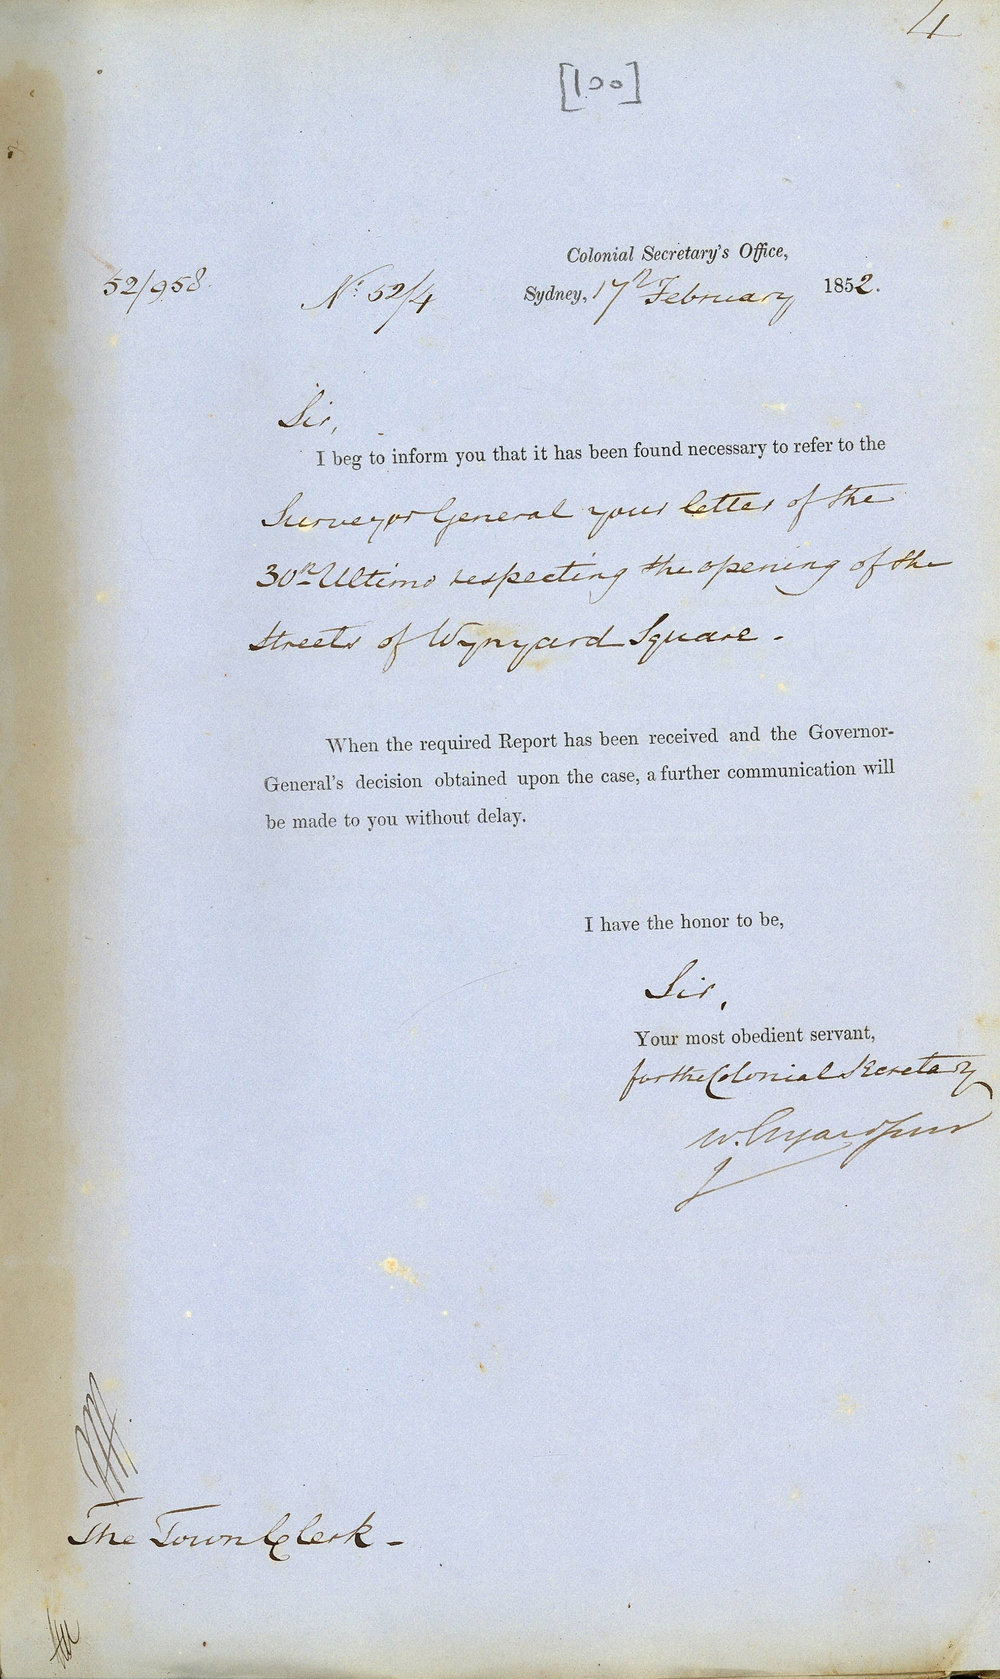 4
[100]
Colonial Secretary's Office,
52/958 No. 52/4 Sydney, 17th February 1852.
Sir,
I beg to inform you that it has been found necessary to refer to the
Surveyor General your letter of the
30th Ultimo respecting the opening of the
Streets of Wynyard Square.
When the required Report has been received and the Governor-
General's decision obtained upon the case, a further communication will
be made to you without delay.
I have the honor to be,
Sir,
Your most obedient servant,
for the Colonial Secretary
W.
The Town Clerk -